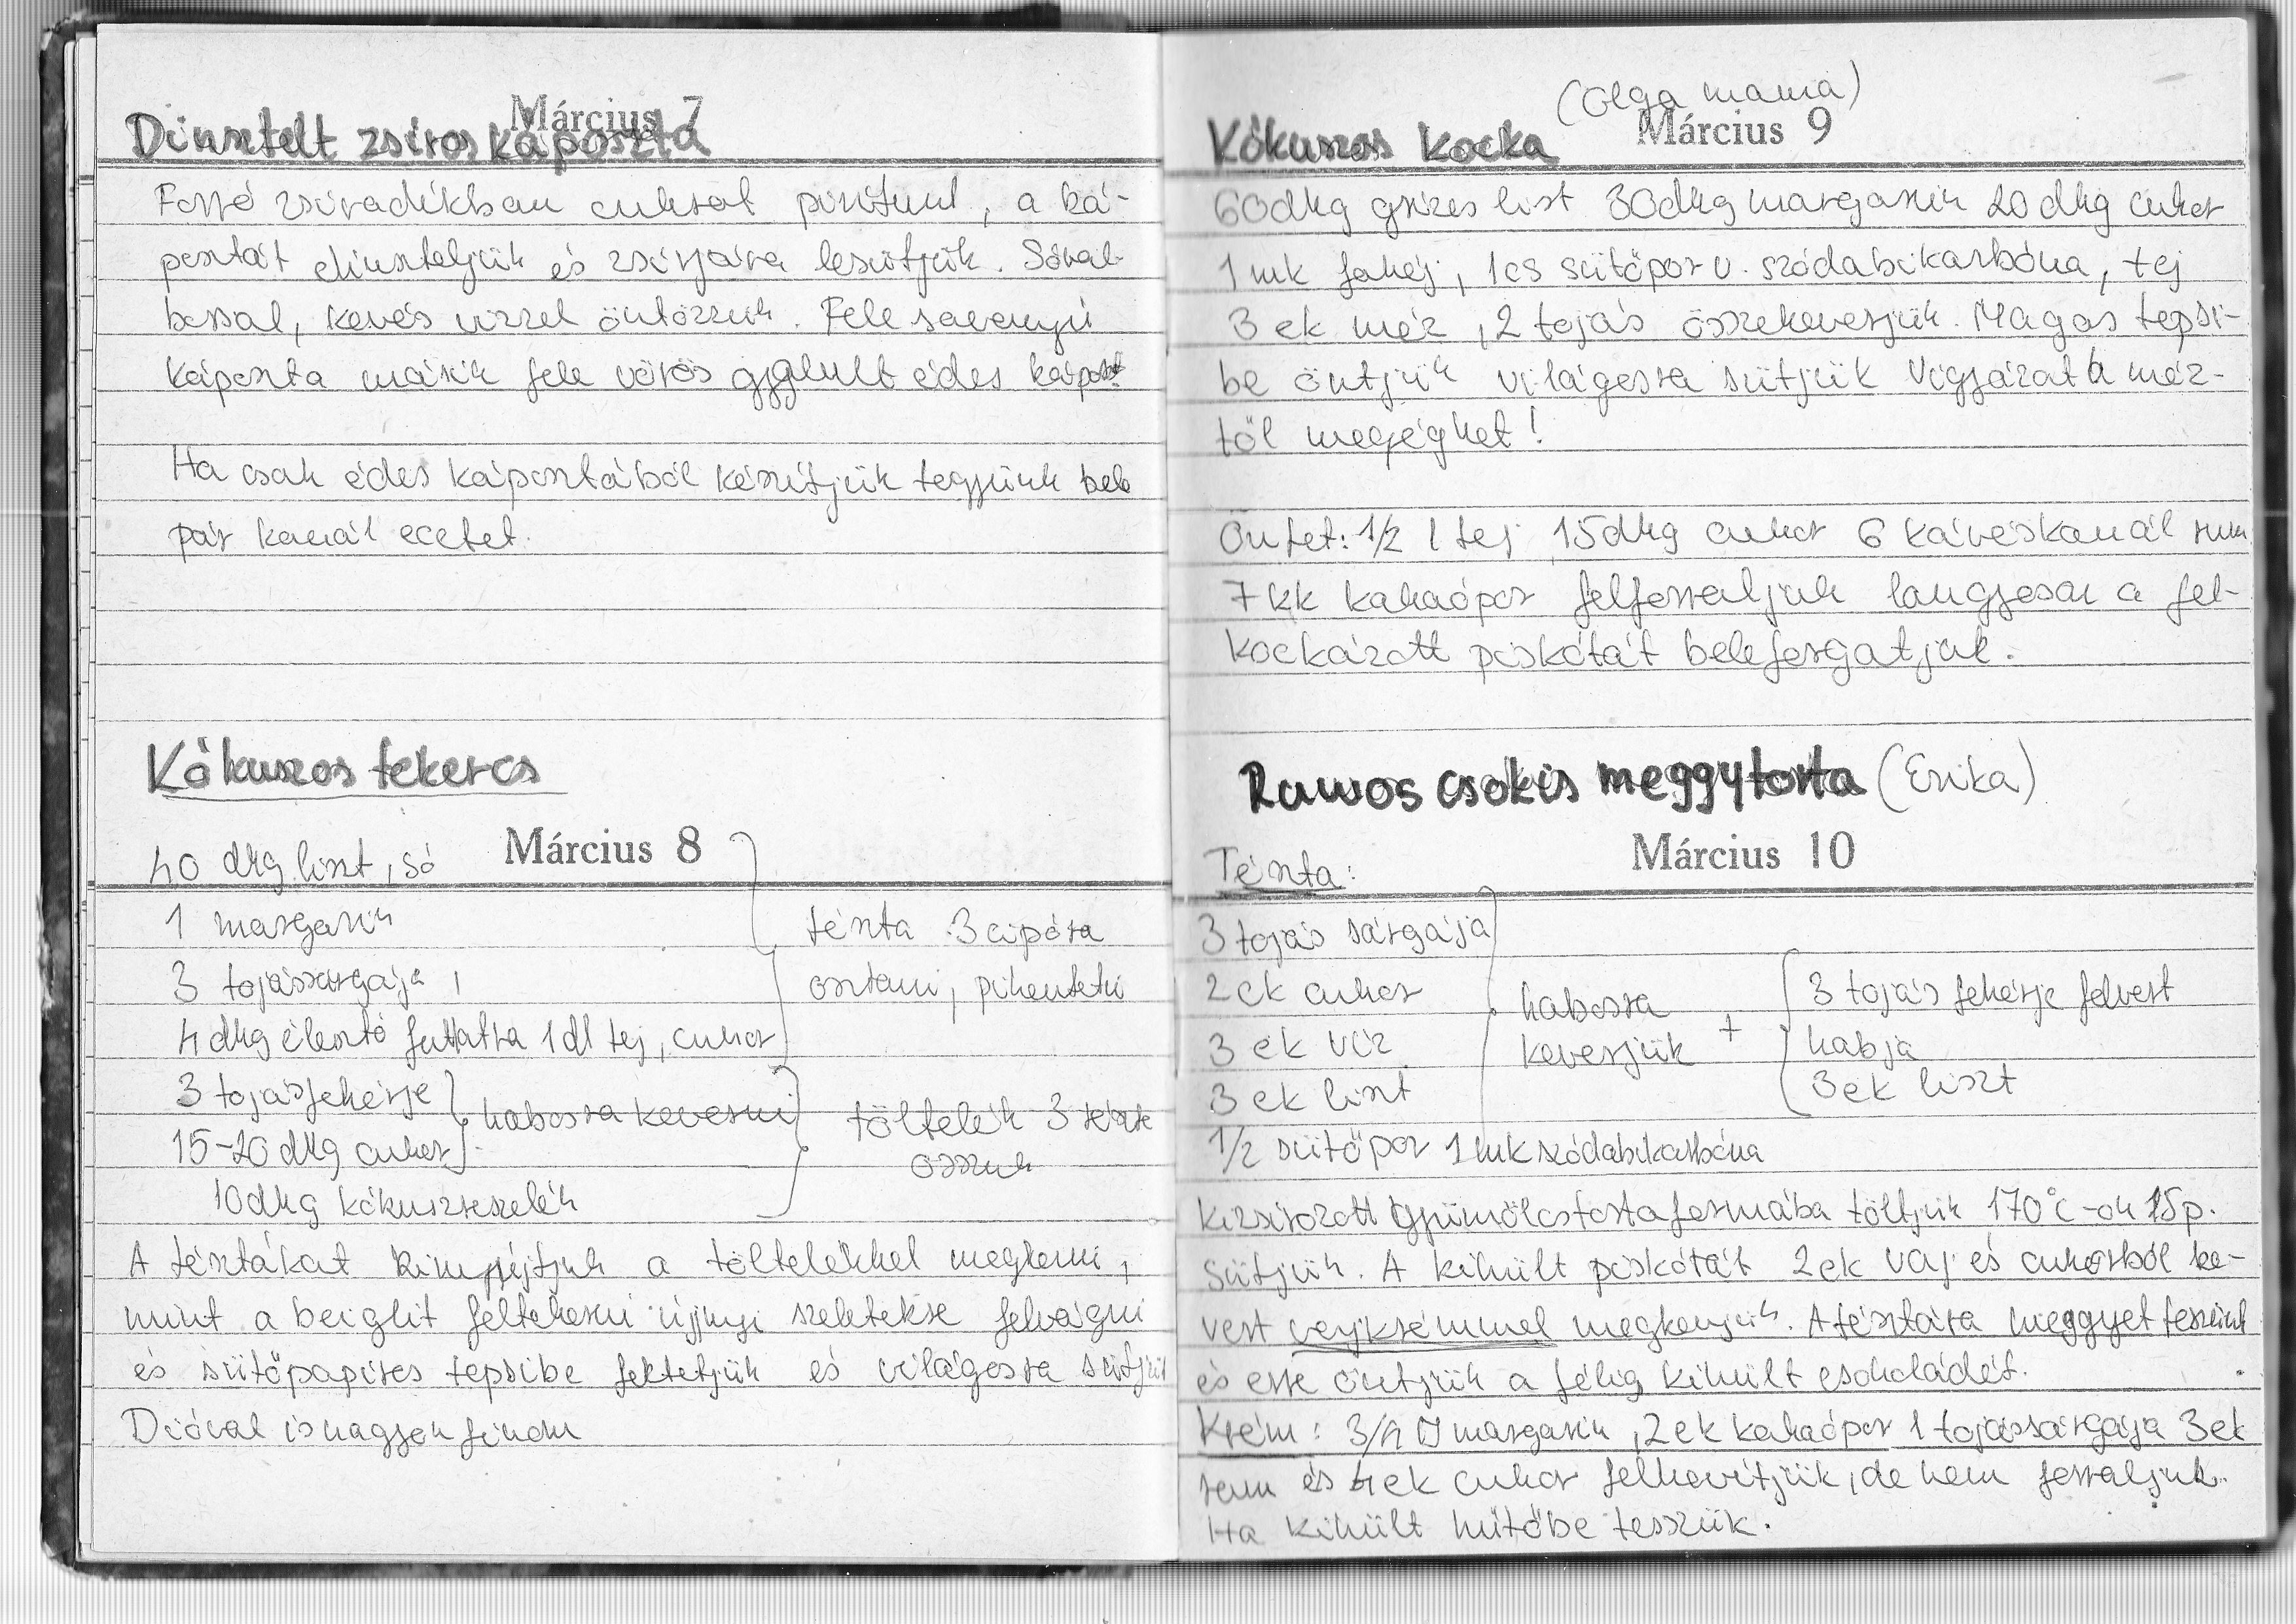 Március 7
Dinsztelt zsíros káposzta
Forró zsiradékban cukrot pirítunk, a ká-
posztát dinszteljük és zsírjára lesütjük. Sóval
borssal, kevés vízzel öntözzük. Fele savanyú
káposzta másik fele vörös gyalult édes káposzt
Ha csak édes káposztából készítjük tegyünk bele
pár kanál ecetet.
Kókuszos tekercs
Március 8
40 dkg liszt, só
1 margarin
3 tojássárgája,
4 dkg élesztő futtatva 1 dl tej, cukor
tészta 3 cipóra
osztani, pihentetni
3 tojásfehérje
15-20 dkg cukor
habosra keverni
10 dkg kókuszreszelék
töltelék 3 részre
osszuk
A tésztákat kinyújtjuk a töltelékkel megkenni,
mint a beiglit feltekerni újjnyi szeletekre felvágni
és sütőpapíros tepsibe fektetjük és világosra sütjük
Dióval is nagyon finom
(Olga mama)
Március 9
Kókuszos kocka
60dkg grízes list 30dkg margarin 20 dkg cukor
1 mk fahéj, 1cs sütőpor v. szódabikarbóna, tej
3 ek méz, 2 tojás összekeverjük. Magas tepsi-
be öntjük világosra sütjük Vigyázat a méz-
től megéghet!
Öntet: 1/2 l tej 15dkg cukor 6 kávéskanál rum
7 kk kakaópor felforraljuk langyosan a fel-
kockázott piskótát beleforgatjuk.
Rumos csokis meggytorta (Erika)
Március 10
Tészta:
3 tojás sárgája
2 ek cukor
3 ek víz
3 ek liszt
habosra
keverjük +
3 tojás fehérje felvert
habja
3 ek liszt
1/2 sütőpor 1mk szódabikarbóna
kizsírozott gyümölcstortaformába töltjük 170°C-on 15p.
sütjük. A kihült piskótát 2ek vaj és cukorból ke-
vert vajkrémmel megkenjük. A tésztára meggyet teszünk
és erre öntjük a félig kihült csokoládét.
Krém: 3/4 margarin, 2ek kakaópor 1 tojássárgája 3ek
rum és 4ek cukor felhevítjük, de nem forraljuk.
Ha kihült hűtőbe tesszük.